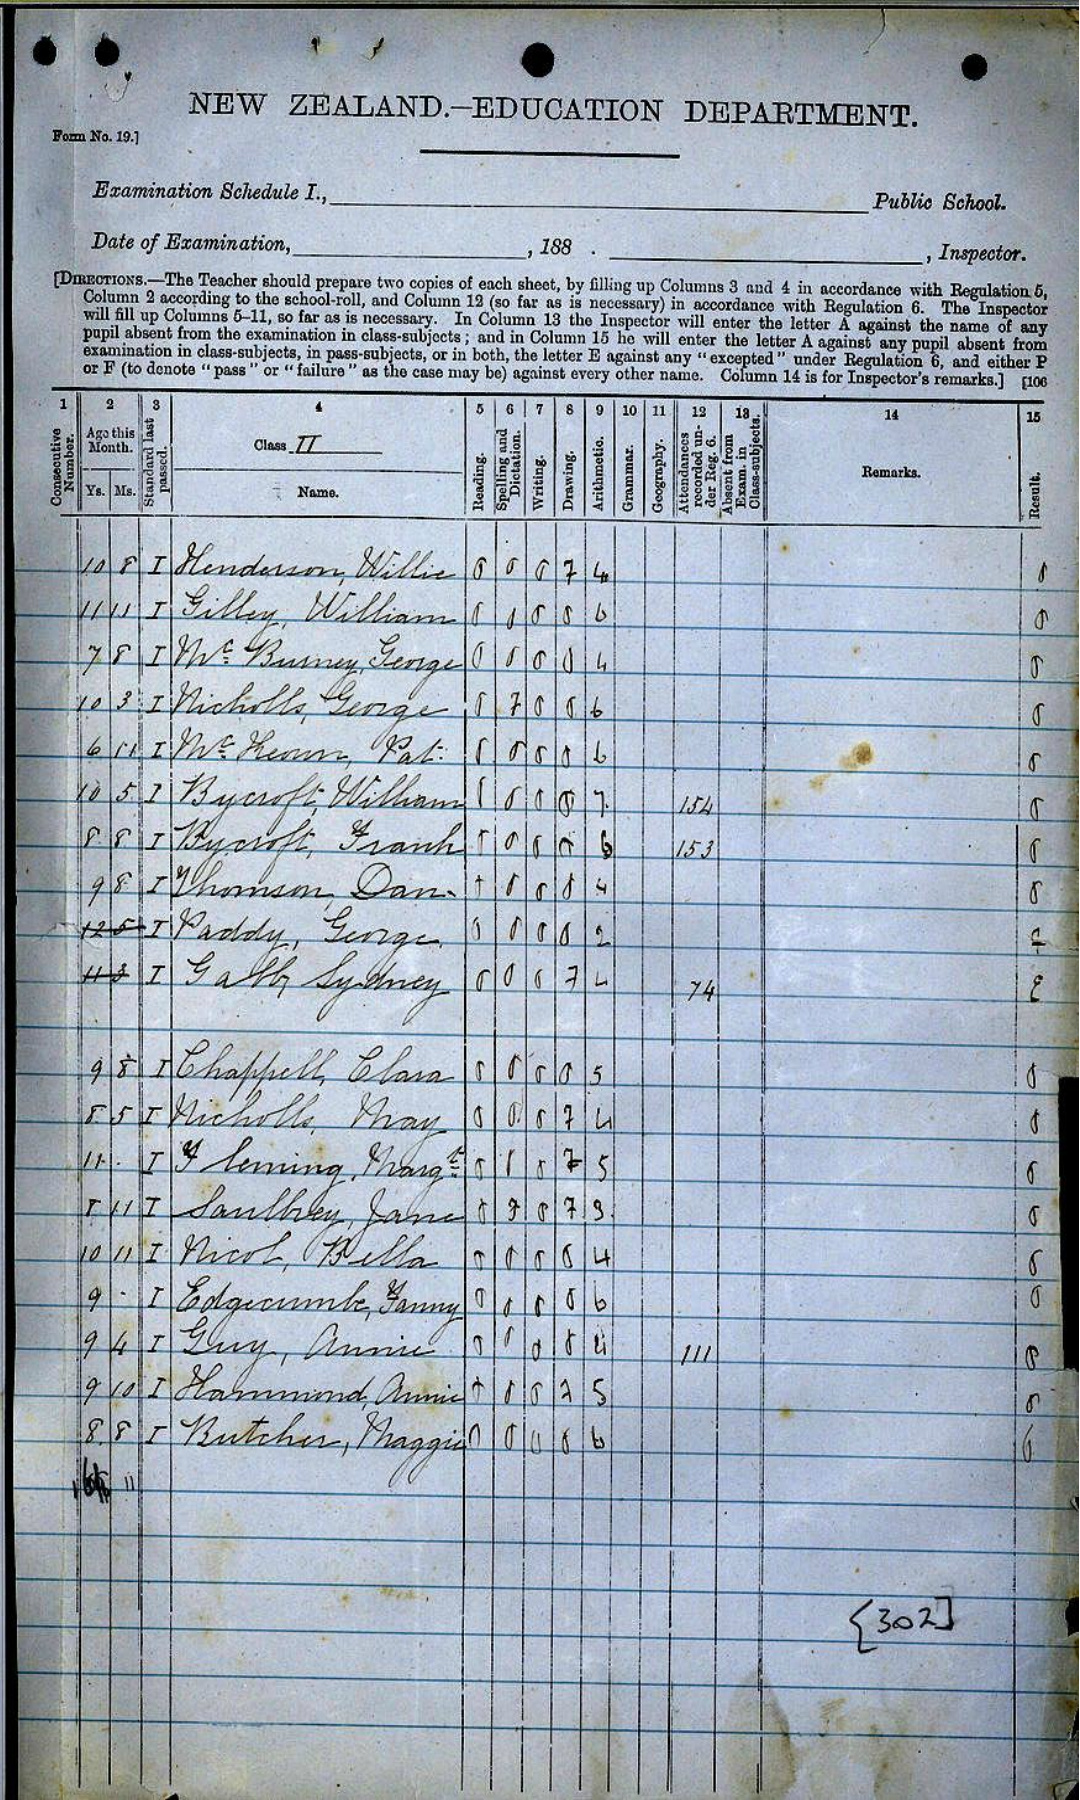 NEW ZEALAND.—EDUCATION DEPARTMENT.
Form No. 19.]
Examination Schedule I., Public School.
Date of Examination, , 188 . , Inspector.
[DIRECTIONS.—The Teacher should prepare two copies of each sheet, by filling up Columns 3 and 4 in accordance with Regulation 5,
Column 2 according to the school-roll, and Column 12 (so far as is necessary) in accordance with Regulation 6. The Inspector
will fill up Columns 5–11, so far as is necessary. In Column 13 the Inspector will enter the letter A against the name of any
pupil absent from the examination in class-subjects; and in Column 15 he will enter the letter A against any pupil absent from
examination in class-subjects, in pass-subjects, or in both, the letter E against any "excepted" under Regulation 6, and either P
or F (to denote "pass" or "failure" as the case may be) against every other name. Column 14 is for Inspector's remarks.] [106
1 2 3 4 5 6 7 8 9 10 11 12 13 14 15
Consecutive Number. Age this Month. Ys. Ms. Standard last passed. Class II Name. Reading. Spelling and Dictation. Writing. Drawing. Arithmetic. Grammar. Geography. Attendances recorded under Reg. 6. Absent from Exam. in Class-subjects. Remarks. Result.
10 8 I Henderson, Willie 7 4
11 11 I Gilley, William 6
7 8 I Mc Burney, George 4
10 3 I Nicholls, George 7 6
6 11 I Mc Keown, Pat: 6
10 5 I Bycroft, William 7 154
8 8 I Bycroft, Frank 6 153
9 8 I Thomson, Dan. 4
12 5 I Paddy, George 2 F
11 3 I Gabb, Sydney 7 4 74 E
9 8 I Chappell, Clara 5
8 5 I Nicholls, May 7 4
11 . I Fleming, Margt 7 5
8 11 I Saulbrey, Jane 7 3
10 11 I Nicol, Bella 4
9 . I Edgecumbe, Fanny 6
9 4 I Guy, Annie 4 111
9 10 I Hammond, Annie 7 5
8 8 I Butcher, Maggie 6
11
{302]